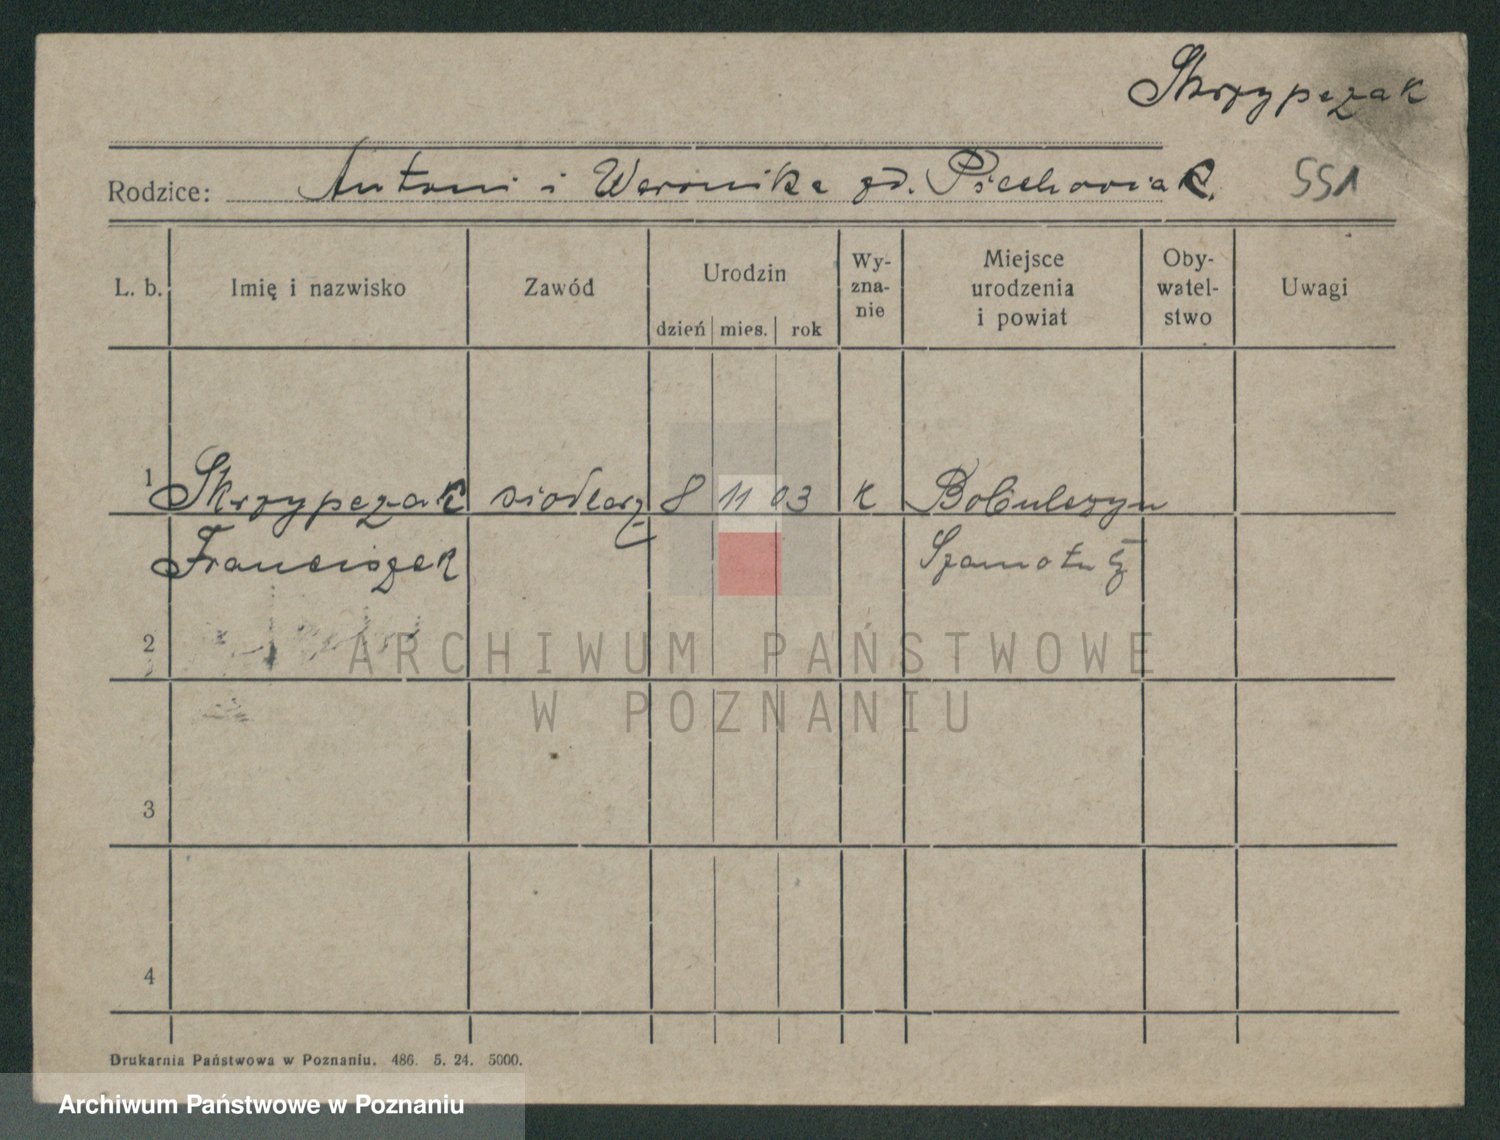 Skrzypczak
Rodzice: Antoni i Weronika zd. Piechowiak. 551
L. b. Imię i nazwisko Zawód Urodzin dzień mies. rok Wy-zna-nie Miejsce urodzenia i powiat Oby-watel-stwo Uwagi
1 Skrzypczak siodlarz 8 11 03 k Bobulczyn
Franciszek Szamotuły
2
ARCHIWUM PAŃSTWOWE
W POZNANIU
3
4
Drukarnia Państwowa w Poznaniu. 486. 5. 24. 5000.
Archiwum Państwowe w Poznaniu